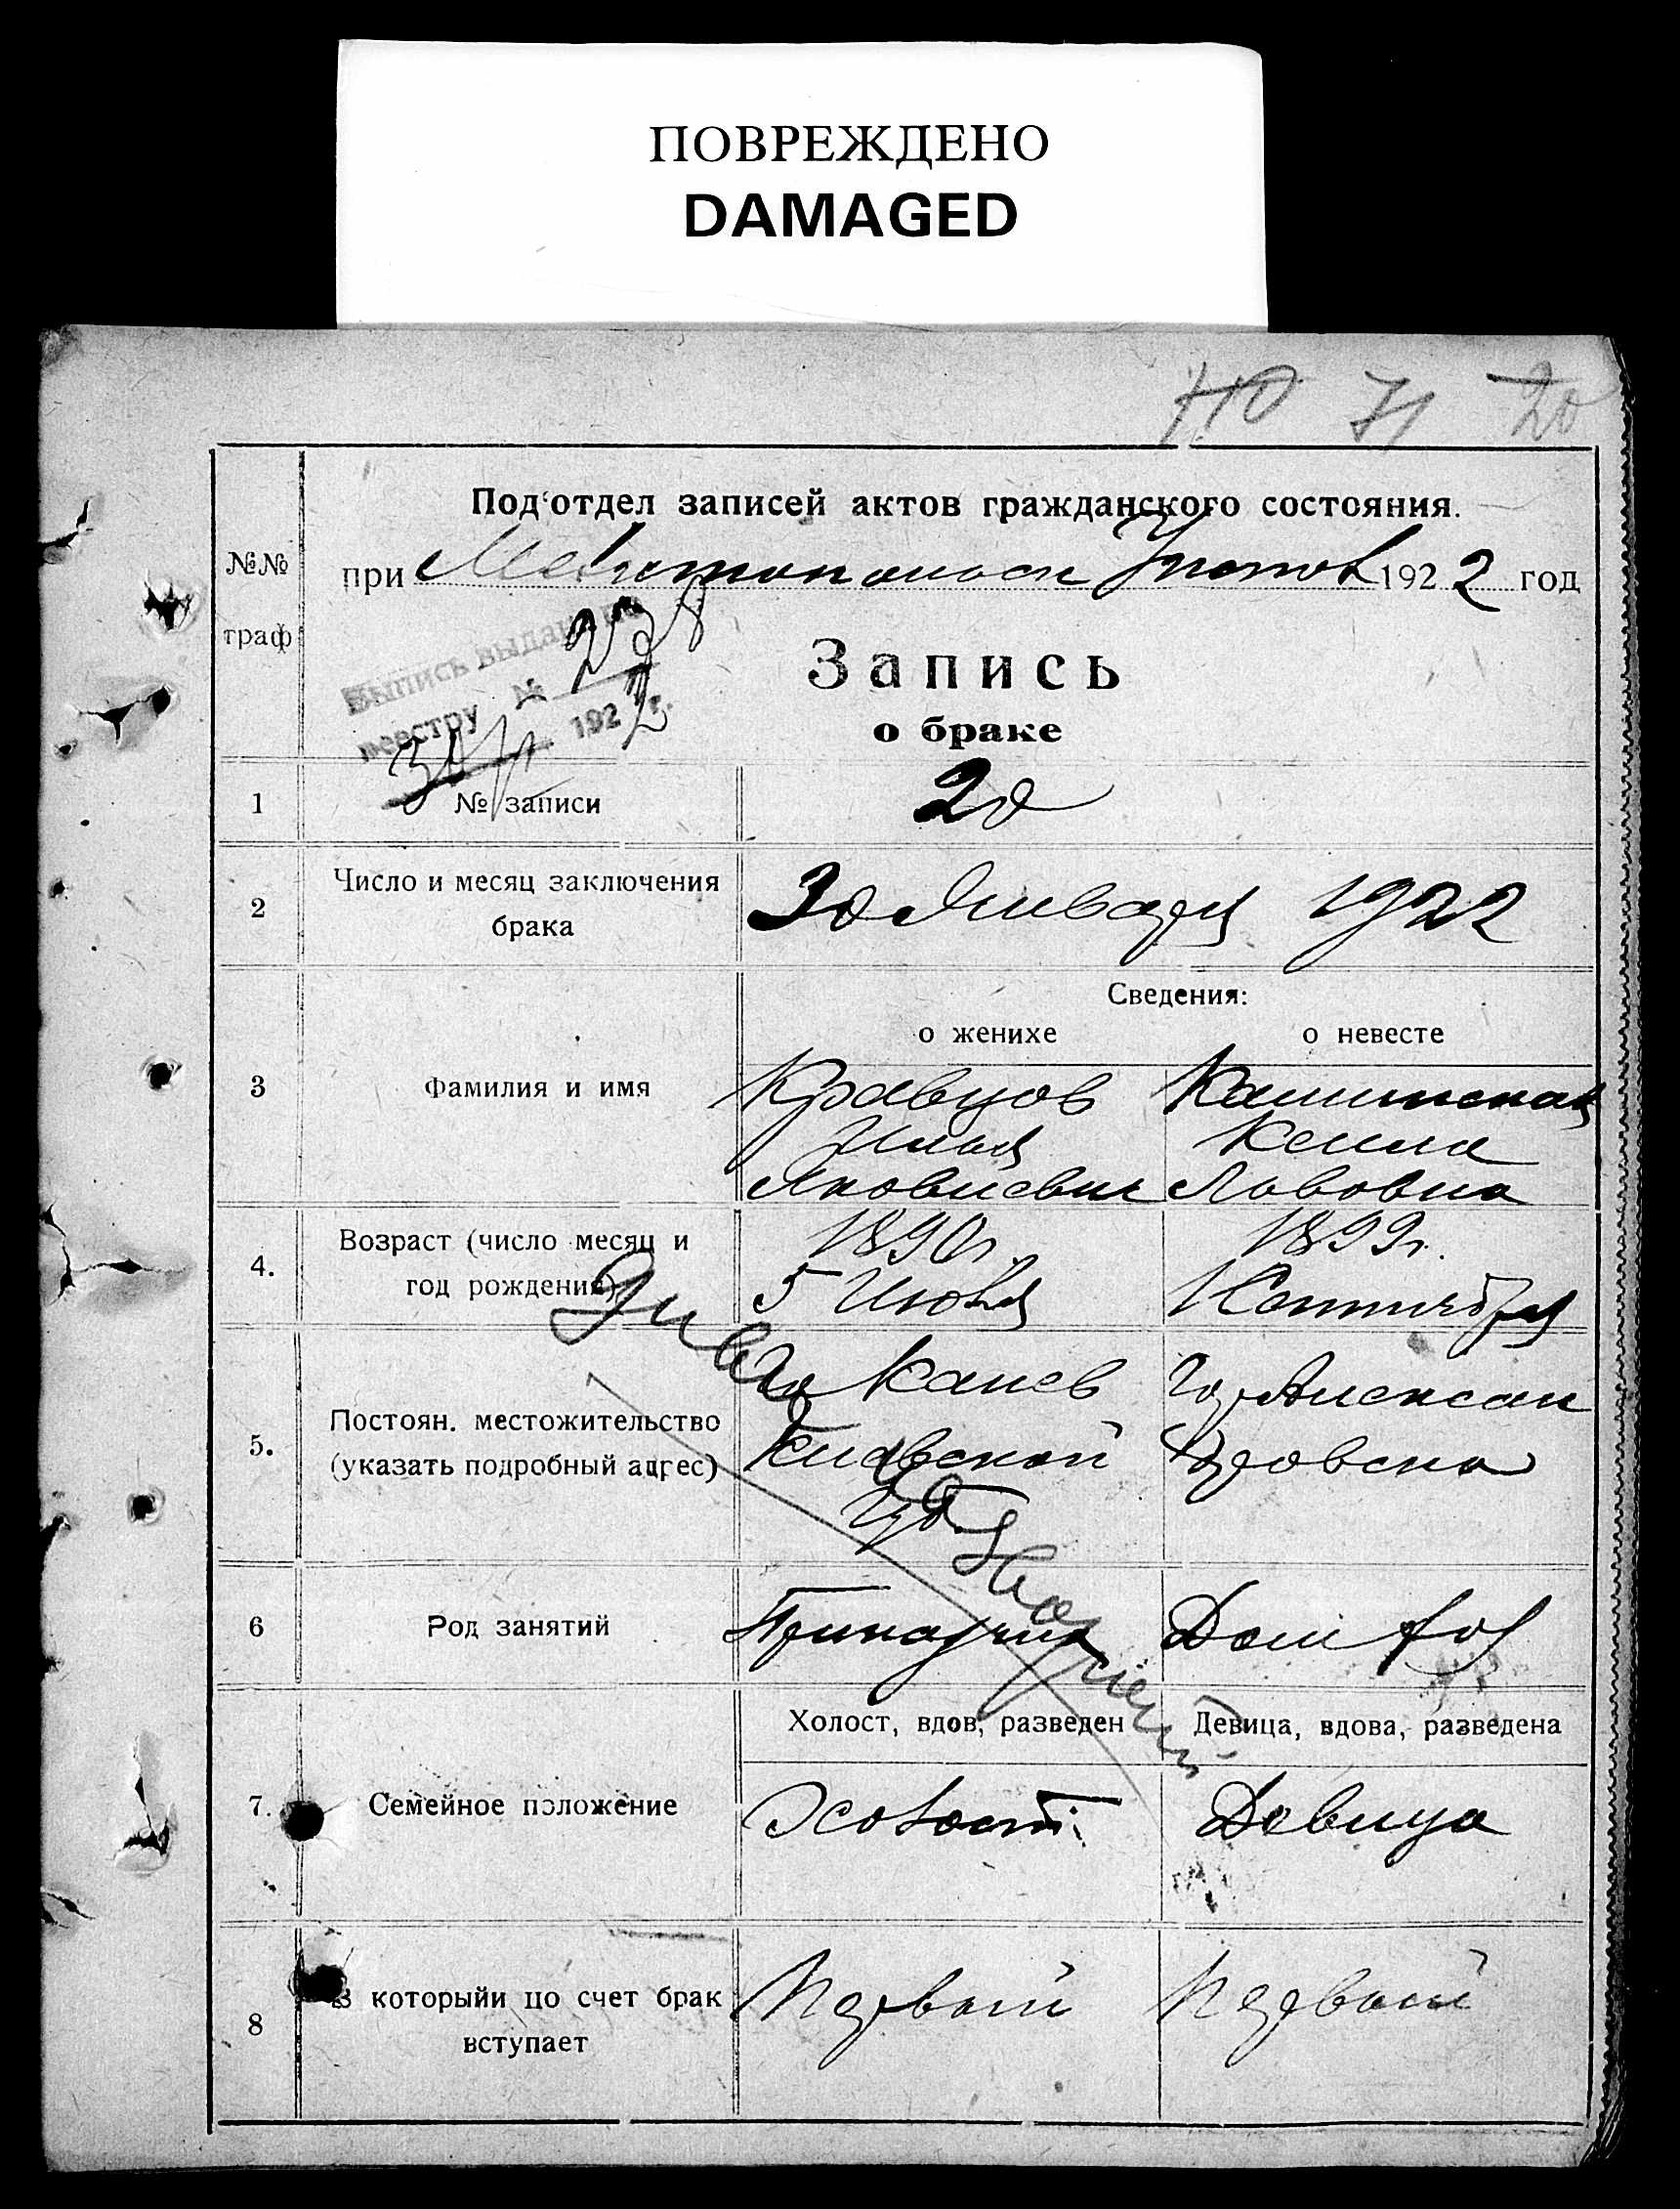 ПОВРЕЖДЕНО
DAMAGED
71 20
Под'отдел записей актов гражданского состояния.
№№ граф
при 1922 год
Выпись выдана по
реестру № 228
192 г.
Запись
о браке
1 № записи 20
2 Число и месяц заключения брака 30 Января 1922
Сведения:
о женихе о невесте
3 Фамилия и имя
Кравцов
Илья Кейла
Яковлевич Львовна
4. Возраст (число месяц и год рождения)
1890 г. 1899 г.
5
5. Постоян. местожительство (указать подробный адрес)
Гор. Канев Гор. Алексан
Киевской дровска
Губ.
6 Род занятий Приказчик Дом хоз
Холост, вдов, разведен Девица, вдова, разведена
7. Семейное положение Холост Девица
8 В которыйи по счет брак вступает Первый Первый